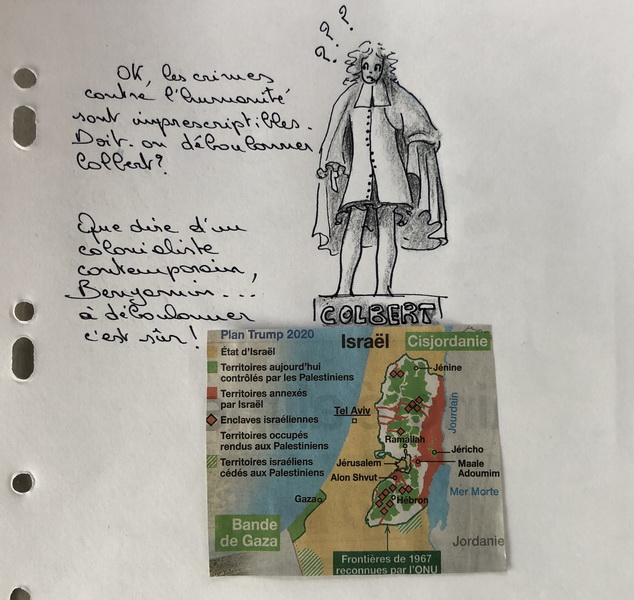 ? ? ?
OK, les crimes
contre l'humanité
sont imprescriptibles.
Doit-on déboulonner
Colbert?
Que dire d'un
colonialiste
contemporain,
Benyamin...
à déboulonner
c'est sûr!
COLBERT
Plan Trump 2020
Israël
Cisjordanie
État d'Israël
Territoires aujourd'hui
contrôlés par les Palestiniens
Territoires annexés
par Israël
Enclaves israéliennes
Territoires occupés
rendus aux Palestiniens
Territoires israéliens
cédés aux Palestiniens
Jénine
Tel Aviv
Jourdain
Ramallah
Jérusalem
Jéricho
Maale
Adoumim
Alon Shvut
Mer Morte
Gaza
Hébron
Bande
de Gaza
Jordanie
Frontières de 1967
reconnues par l'ONU